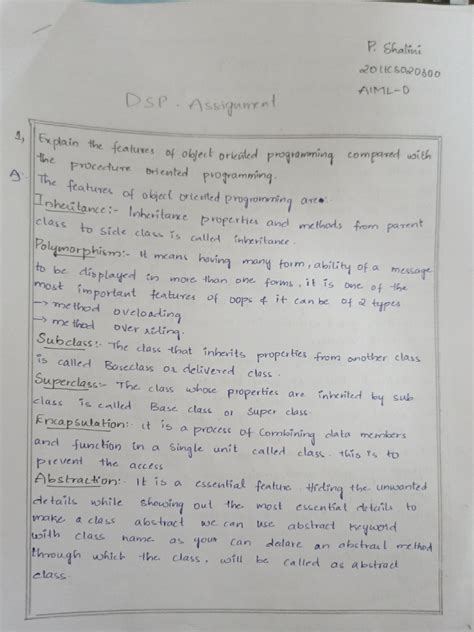 P. Shalini
2011CS020300
AIML-D
DSP - Assignment
1, Explain the features of object oriented programming compared with
the procedure oriented programming.
A:- The features of object oriented programming are:-
Inheritance:- Inheritance properties and methods from parent
class to side class is called inheritance.
Polymorphism:- It means having many form, ability of a message
to be displayed in more than one forms, it is one of the
most important features of oops & it can be of 2 types
→ method overloading
→ method over riding.
Subclass:- The class that inherits properties from another class
is called Baseclass or delivered class.
Superclass:- The class whose properties are inherited by sub
class is called Base class or Super class.
Encapsulation:- It is a process of combining data members
and function in a single unit called class. this is to
prevent the access
Abstraction:- It is a essential feature. Hiding the unwanted
details while showing out the most essential details to
make a class abstract we can use abstract keyword
with class name as your can delare an abstract method
through which the class, will be called as abstract
class.